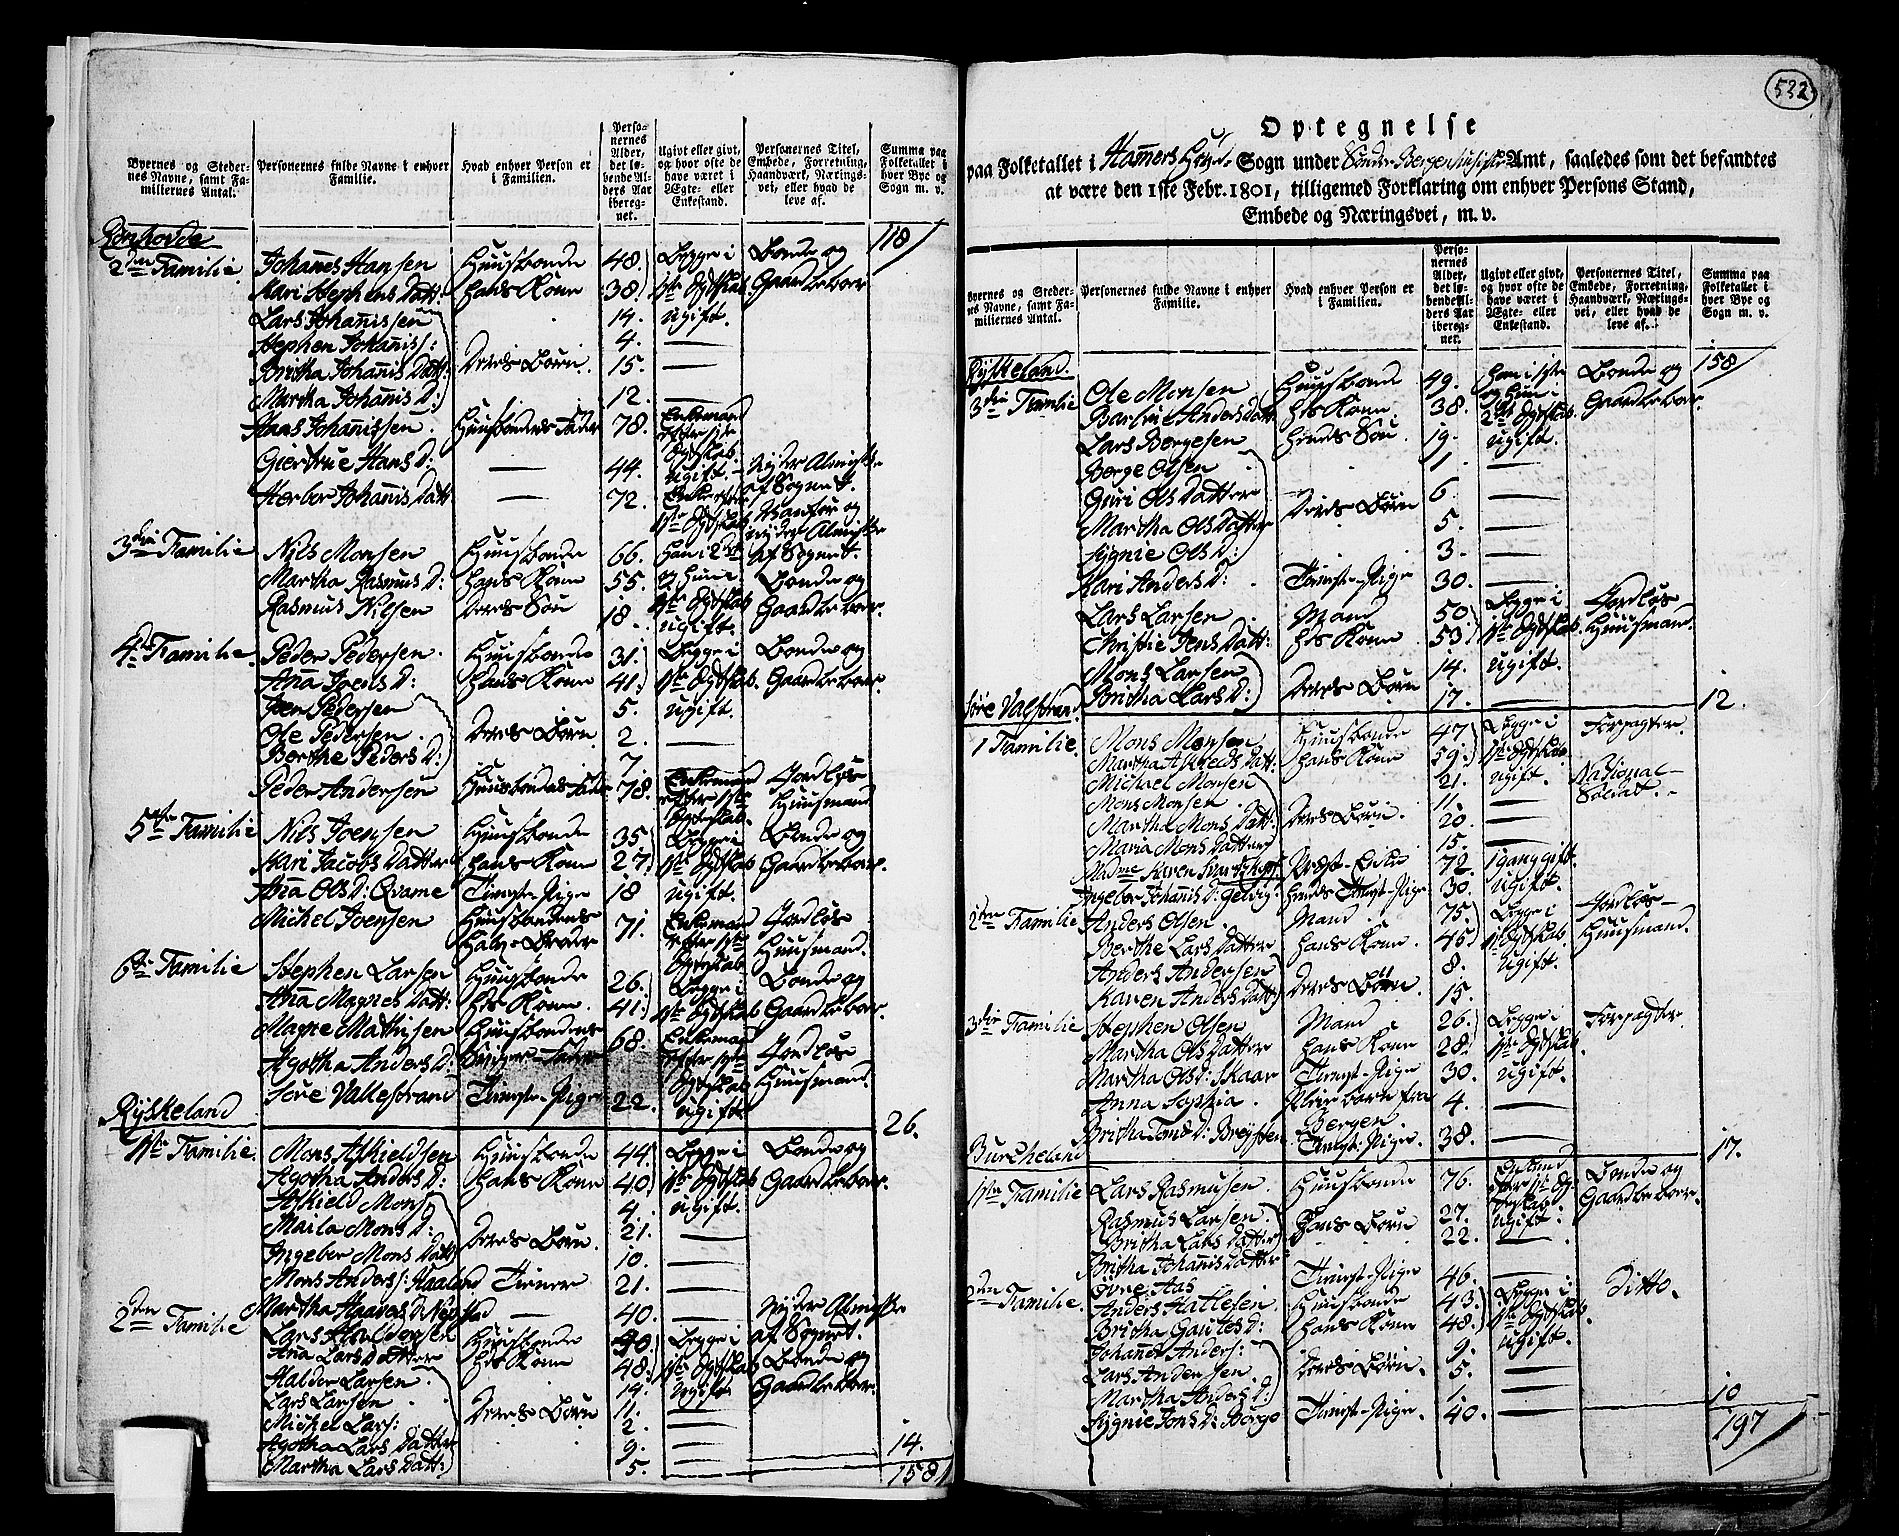 Byernes og Stedernes Navne, samt Familiernes Antal.
Personernes fulde Navne i enhver Familie.
Hvad enhver Person er i Familien.
Personernes Alder, det løbende Alders Aar iberegnet.
Ugivt eller givt, og hvor ofte de have været i Ægte- eller Enkestand.
Personernes Titel, Embede, Forretning, Haandværk, Næringsvei, eller hvad de leve af.
Summa paa Folketallet i hver Bye og Sogn m. v.
Rønhovde 118
2den Familie Johanes Hansen Huusbonde 48. Begge i Bonde og
Mari Stephens Datt: Hans Kone 38. 1ste Egteskab Gaardbeboer
Lars Johannissen 14. ugift.
Stephen Johannis: 4. —
Britha Johannis Datt: Deres Børn 15. —
Martha Johannis D: 12. —
Haas Johannissen. Huusbondens Fader 78. Enkemand
efter 1ste Egteskab
Giertrue Hans D: — 44. ugift. Nyder Almisse af Sognet.
Herbor Johannis Datt — 72. Enke efter 1ste Egteskab Vanfør og nyder Almisse af Sognet.
3die Familie Nils Monsen Huusbonde 66. Han i 2det
Martha Rasmus D: Hans Kone 55. og hun i 1ste Egteskab Bonde og
Rasmus Nilsen Deres Søn 18. ugift. Gaardbeboer.
4de Familie Peder Pedersen. Huusbonde 31. Begge i Bonde og
Ana Joens D: Hans Kone 41. 1ste Egteskab. Gaardbeboer.
Joen Pedersen 5. ugift.
Ole Pedersen. Deres Børn 2. —
Berthe Peders D: 7. —
Peder Andersen Huusbondens Fader 78. Enkemand efter 1ste Egteskab. Jordløs Huusmand
5te Familie Nils Joensen Huusbonde 35. Begge i Bonde og
Mari Jacobs Datter Hans Kone 27. 1ste Egteskab Gaardbeboer.
Ana Ols D: Qvame Tieneste-Pige 18 ugift.
Michel Joensen Huusbondens Halv-Broder 71. Enkemand efter 1ste Egteskab Jordløs Huusmand.
6te Familie Stephen Larsen Huusbonde 26. Begge i Bonde og
Ana Magnes Datt: Hs Kone. 41. 1ste Egteskab Gaardbeboer.
Magne Mathisen Huusbondens 68. Enkemand efter 1ste Jordløs
Agotha Anders D: Sviger-Fader Egteskab Huusmand.
Søre Vallestrand Tieneste-Pige 22. ugift
Ryskeland 26.
1ste Familie. Mons Askieldsen Huusbonde 44. Begge i Bonde og
Agotha Anders D: Hans Kone 40. 1ste Egteskab Gaardbeboer.
Askield Mons: 4. ugift.
Maila Mons D: Deres Børn. 21. —
Ingebor Mons Datt 10. —
Mons Anders: Kaaland Tiener 21. —
Martha Haavers D: — 40. — Nyder Almisse af Sognet.
2den Familie Lars Huusbonde 50. Begge i
Ana Lars Datter Hs Kone 48. 1ste Egteskab Bonde og
Haldor Larsen. 14. ugift Gaardbeboer.
Lars Larsen. Deres Børn 11. —
Michel Lars: 2. —
Agotha Lars Datter 9. — 14.
Martha Lars Datt: 5. — 158
532
Optegnelse
paa Folketallet i Hammers Hoved Sogn under Sønder Bergenhuus Amt, saaledes som det befandtes
at være den 1ste Febr. 1801, tilligemed Forklaring om enhver Persons Stand,
Embede og Næringsvei, m. v.
Byernes og Stedernes Navne, samt Familiernes Antal.
Personernes fulde Navne i enhver Familie.
Hvad enhver Person er i Familien.
Personernes Alder, det løbende Alders Aar iberegnet.
Ugivt eller givt, og hvor ofte de have været i Ægte- eller Enkestand.
Personernes Titel, Embede, Forretning, Haandværk, Næringsvei, eller hvad de leve af.
Summa paa Folketallet i hver Bye og Sogn m. v.
Ryskeland. 158
3die Familie Ole Monsen Huusbonde 49. Han i 1ste Bonde og
Barbue Anders Datt Hs Kone. 38. og Hun i 2det Egteskab. Gaardbeboer.
Lars Børgesen Hendes Søn. 19. ugift.
Børge Olsen 1. —
Guri Ols Datter Deres Børn 6. —
Martha Ols Datter 5. —
Sygnie Ols D: 3. —
Kari Anders D: Tieneste-Pige 30. —
Lars Larsen Mand 50. Begge i Jordløs
Christie Jens Datt: Hs Kone 53. 1ste Egteskab. Huusmand.
Mons Larsen Deres Børn 14. ugift.
Britha Lars D: 17. — 12.
Søre Valestrand
1 Familie. Mons Monsen Huusbonde 47 Begge i Forpagter.
Martha Askields Datt: Hans Kone 59. 1ste Egteskab
Michael Monsen 21. ugift. National-Soldat.
Mons Monsen Deres Børn. 11. —
Martha Mons Datt: 20. —
Maria Mons Datter 15. —
Madme Karen Hartvigs Præst-Enke 72. 1 gang gift.
Ingebor Johannis D: Gelvig Hendes Tienest-Pige 30. ugift.
2den Familie Anders Olsen Mand 75. Begge i Jordløs
Berthe Lars Datter Hans Kone. 45. 1ste Egteskab. Huusmand.
Anders Andersen Deres Børn. 8. ugift.
Karen Anders Datt 15. —
3die Familie Stephen Olsen Mand 26. Begge i Forpagter
Martha Ols Datter Hans Kone 28. 1ste Egteskab
Martha Ols D: Skaar Tienest-Pige 30. ugift.
Anna Sophia. Pleiebarn fra Bergen. 4. —
Britha Tomæ D: Breysten Tienest-Pige. 38. — 17.
Burkeland
1ste Familie Lars Rasmusen Huusbonde 76. Enkemand efter 1ste Egteskab Bonde og Gaardbeboer.
Rasmus Larsen. Hans Børn 27. ugift.
Britha Lars Datter 22. —
Britha Johannis Datter Øvre Aas Tienest-Pige 46. —
2den Familie. Anders Hallesen Huusbonde 43. Begge i Ditto.
Britha Gautes D: Hans Kone 48. 1ste Egteskab.
Johannes Anders: 9. ugift.
Lars Andersen Deres Børn. 5. —
Martha Anders D: 1. — 10
Sygnie Jons D: Borge Tienest-Pige. 40. — 197